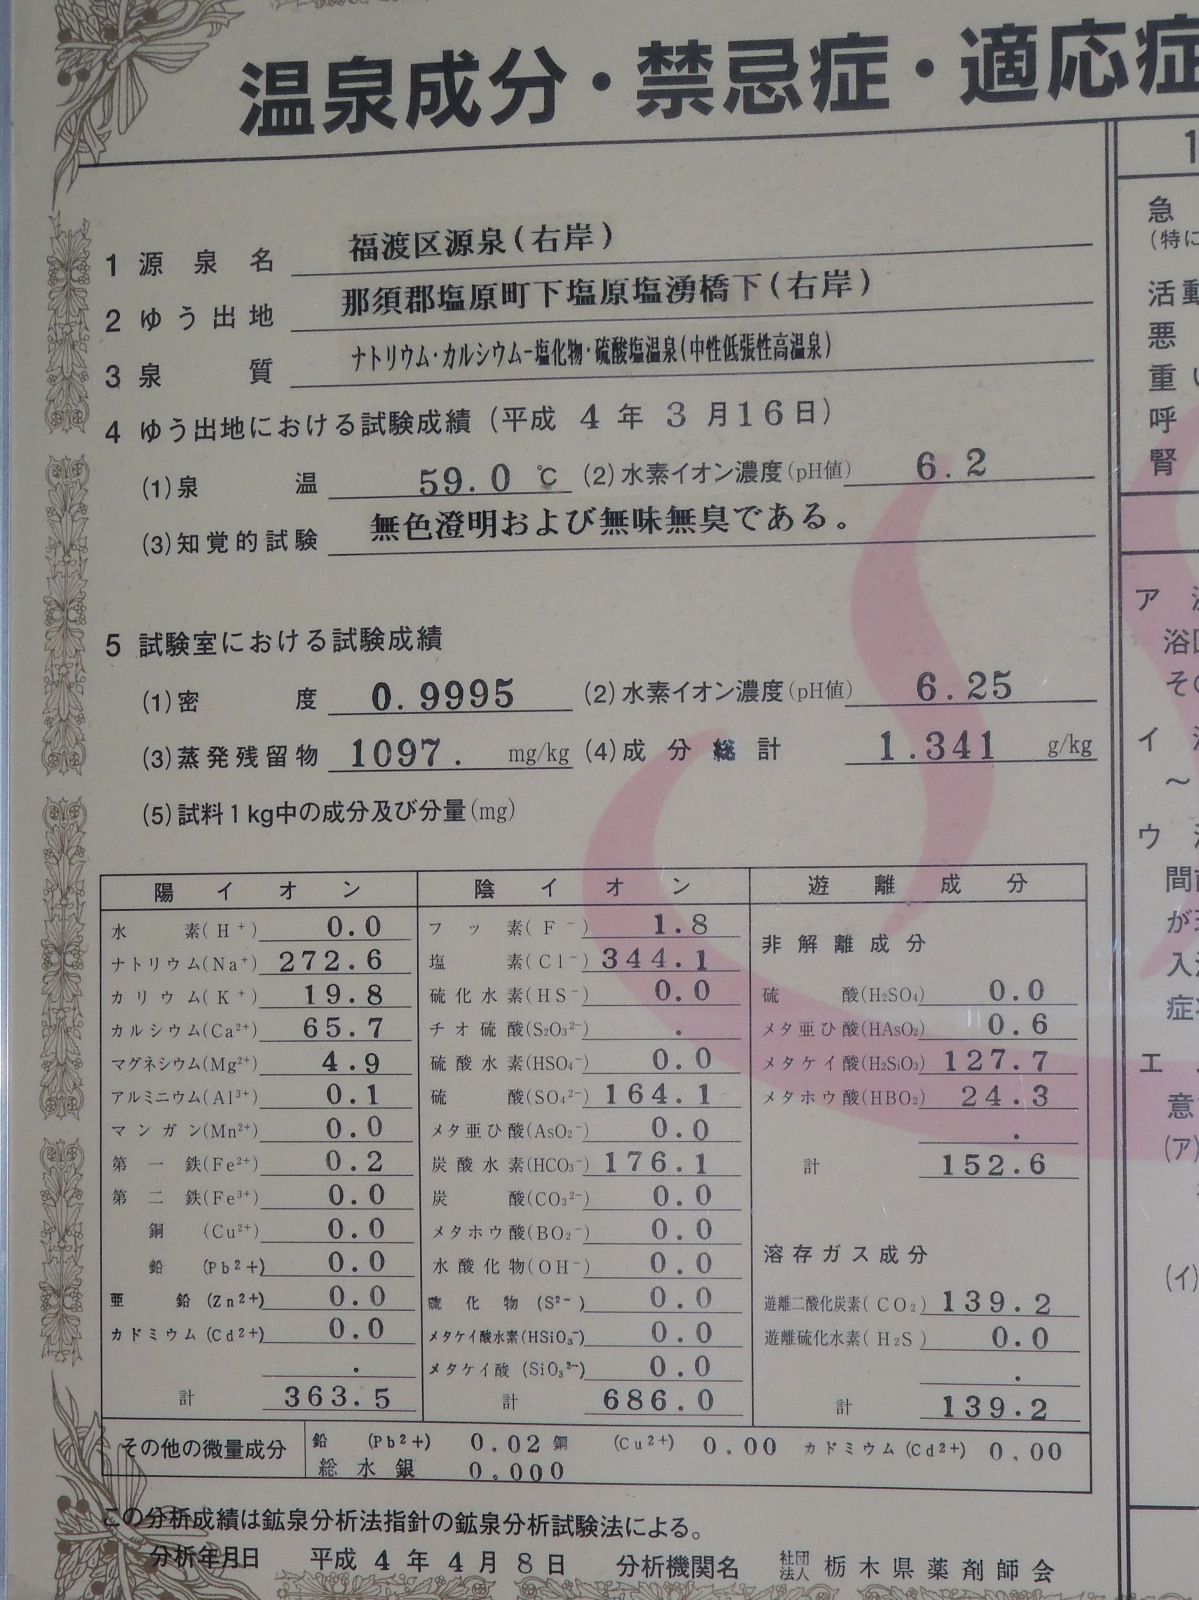 温泉成分・禁忌症・適応症
1 源泉名 福渡区源泉(右岸)
2 ゆう出地 那須郡塩原町下塩原塩湧橋下(右岸)
3 泉質 ナトリウム・カルシウム-塩化物・硫酸塩温泉(中性低張性高温泉)
4 ゆう出地における試験成績(平成 4 年 3 月16日)
(1)泉温 59.0 ℃ (2)水素イオン濃度(pH値) 6.2
(3)知覚的試験 無色澄明および無味無臭である。
5 試験室における試験成績
(1)密度 0.9995 (2)水素イオン濃度(pH値) 6.25
(3)蒸発残留物 1097. mg/kg (4)成分総計 1.341 g/kg
(5)試料1kg中の成分及び分量(mg)
陽イオン 陰イオン 遊離成分
水素(H⁺) 0.0 フッ素(F⁻) 1.8
非解離成分
ナトリウム(Na⁺) 272.6 塩素(Cl⁻) 344.1
カリウム(K⁺) 19.8 硫化水素(HS⁻) 0.0 硫酸(H₂SO₄) 0.0
カルシウム(Ca²⁺) 65.7 チオ硫酸(S₂O₃²⁻) . メタ亜ひ酸(HAsO₂) 0.6
マグネシウム(Mg²⁺) 4.9 硫酸水素(HSO₄⁻) 0.0 メタケイ酸(H₂SiO₃) 127.7
アルミニウム(Al³⁺) 0.1 硫酸(SO₄²⁻) 164.1 メタホウ酸(HBO₂) 24.3
マンガン(Mn²⁺) 0.0 メタ亜ひ酸(AsO₂⁻) 0.0 .
第一鉄(Fe²⁺) 0.2 炭酸水素(HCO₃⁻) 176.1 計 152.6
第二鉄(Fe³⁺) 0.0 炭酸(CO₃²⁻) 0.0
銅(Cu²⁺) 0.0 メタホウ酸(BO₂⁻) 0.0
溶存ガス成分
鉛(Pb²⁺) 0.0 水酸化物(OH⁻) 0.0
亜鉛(Zn²⁺) 0.0 硫化物(S²⁻) 0.0 遊離二酸化炭素(CO₂) 139.2
カドミウム(Cd²⁺) 0.0 メタケイ酸水素(HSiO₃⁻) 0.0 遊離硫化水素(H₂S) 0.0
. メタケイ酸(SiO₃²⁻) 0.0 .
計 363.5 計 686.0 計 139.2
その他の微量成分 鉛(Pb²⁺) 0.02 銅(Cu²⁺) 0.00 カドミウム(Cd²⁺) 0.00
総水銀 0.000
この分析成績は鉱泉分析法指針の鉱泉分析試験法による。
分析年月日 平成 4 年 4 月 8 日 分析機関名 社団法人 栃木県薬剤師会
1
急
(特に
活動
悪
重い
呼
腎
ア
浴
その
イ
~
ウ
間
が
入
症
エ
意
(ア)
(イ)